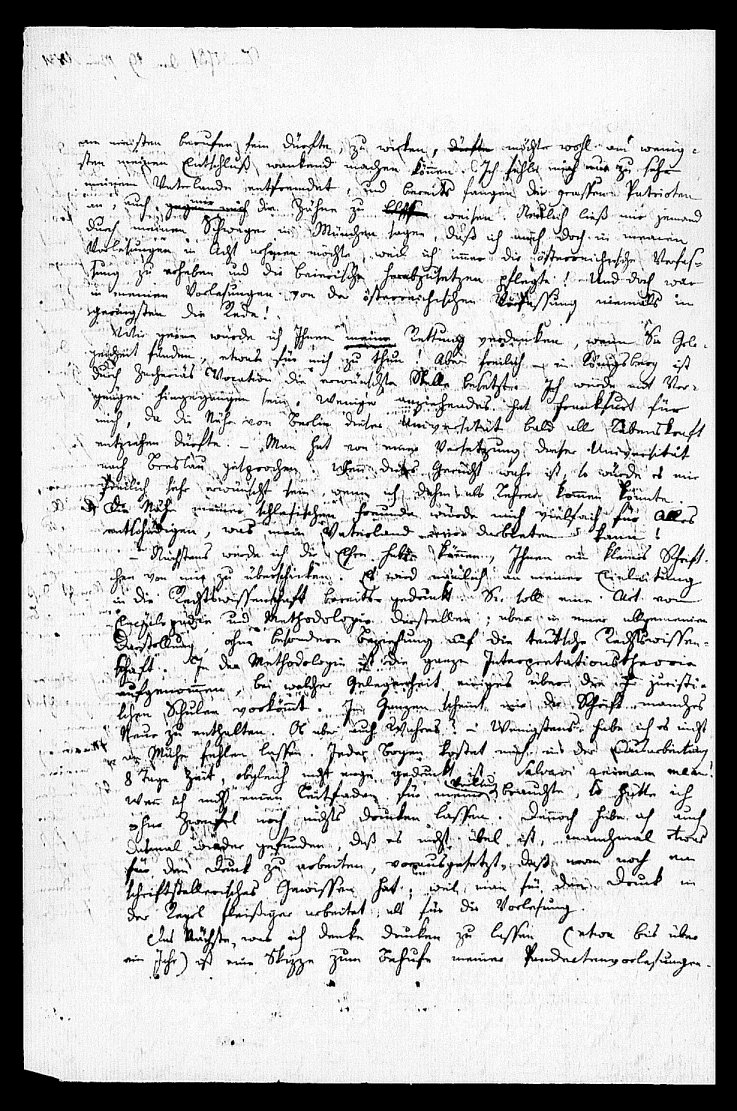 am meisten berufen sein dürfte, zu wirken, dürfte möchte wohl am wenig-
sten meinen Entschluß wankend machen können. Ich fühle mich nur zu sehr
meinem Vaterlande entfremdet, und bereits fangen die grossen Patrioten
an, auch gegen mich die Zähne zu weisen. Neulich ließ mir jemand
durch meinen Schwager in München sagen, daß ich mich doch in meinen
Vorlesungen in Acht nehmen möchte, weil ich immer die österreichische Verfas-
sung zu erheben und die baierische herabzusetzen pflegte! Und doch war
in meinen Vorlesungen von der österreichischen Verfassung niemals im
geringsten die Rede!
Wie gerne würde ich Ihnen meine Rettung verdanken, wenn Sie Gele-
genheit fänden, etwas für mich zu thun! Aber freilich – in Königsberg ist
durch Vocation die erwünschte Stelle besetzt. Ich würde mit Ver-
gnügen hingegangen sein. Weniger anziehendes hat Frankfurt für
mich, da die Nähe von Berlin dieser Universität bald alle Lebenskraft
entziehen dürfte. – Man hat von einer Versetzung dieser Universität
nach Breslau gesprochen. Wenn dies Gerücht wahr ist, so würde es mir
freilich sehr erwünscht sein, wenn ich dahin als Lehrer kommen könnte.
Die Nähe meiner schlesischen Freunde würde mich vielfach für Alles
entschädigen, was mein Vaterland mir darbieten kann!
– Nächstens werde ich die Ehre haben können, Ihnen ein kleines Schrift-
chen von mir zu überschicken. Es wird nämlich an meiner Einleitung
in die Rechtswissenschaft bereits gedruckt. Sie soll eine Art von
Encyklopädie und Methodologie darstellen; aber in einer allgemeinen
Darstellung, ohne besondere Beziehung auf die teutsche Rechtswissen-
schaft. In der Methodologie ist die ganze Interpretationstheorie
aufgenommen, bei welcher Gelegenheit einiges über die juristi-
schen Schulen vorkömmt. Im Ganzen scheint mir die Schrift manches
Neue zu enthalten. Ob aber auch Wahres? – Wenigstens habe ich es nicht
an Mühe fehlen lassen. Jeder Bogen kostet mich in der Ausarbeitung
8 Tage Zeit, obgleich nicht enge gedruckt ist. Salvavi animam meam!
Wenn ich nicht einen Leitfaden für meine Vorles. brauchte, so hätte ich
ohne Zweifel noch nichts drucken lassen. Dennoch habe ich auch
diesmal wieder gefunden, daß es nicht übel ist, manchmal etwas
für den Druck zu arbeiten, vorausgesetzt, daß man noch ein
schriftstellerisches Gewissen hat; weil man für den Druck in
der Regel fleißiger arbeitet, als für die Vorlesung.
Das Nächste, was ich denke drucken zu lassen (etwa bis über
ein Jahr) ist eine Skizze zum Behufe meiner Pandectenvorlesungen.